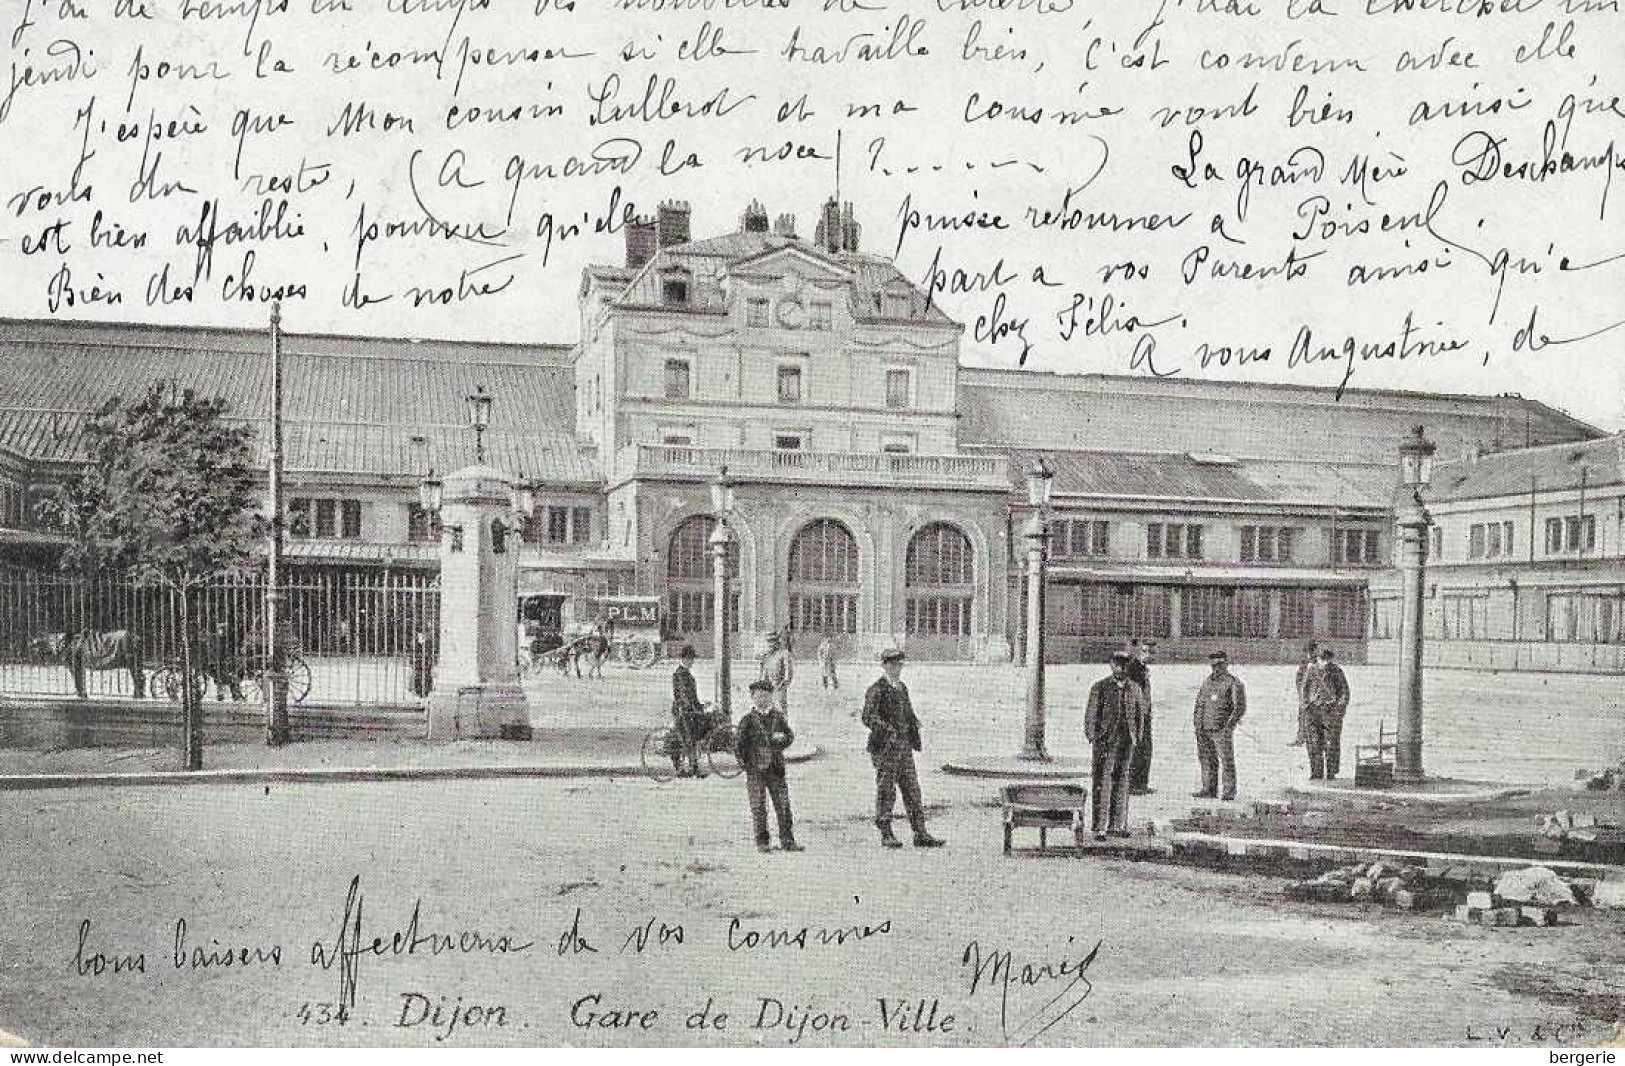 J'ai de temps en temps des nouvelles de
jeudi pour la récompenser si elle travaille bien, C'est convenu avec elle
J'espère que Mon cousin Lullerot et ma cousine vont bien ainsi que
vous du reste, (A quand la noce ? . . . . . . )
La grand Mère Deschamps
est bien affaiblie, pourvu qu'elle puisse retourner a Poiseul.
Bien des choses de notre part a vos Parents ainsi qu'a
chez Félix.
A vous Augustine, de
PLM
bons baisers affectueux de vos cousines
Marie
434. Dijon. Gare de Dijon-Ville.
L. V. & Cie
bergerie